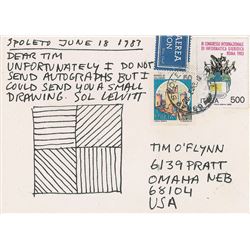 SPOLETO JUNE 18 1987
DEAR TIM
UNFORTUNATELY I DO NOT
SEND AUTOGRAPHS BUT I
COULD SEND YOU A SMALL
DRAWING. SOL LEWITT
AEREA
III CONGRESSO INTERNAZIONALE
DI INFORMATICA GIURIDICA
ROMA 1983
500
TIM O'FLYNN
6139 PRATT
OMAHA NEB
68104
USA